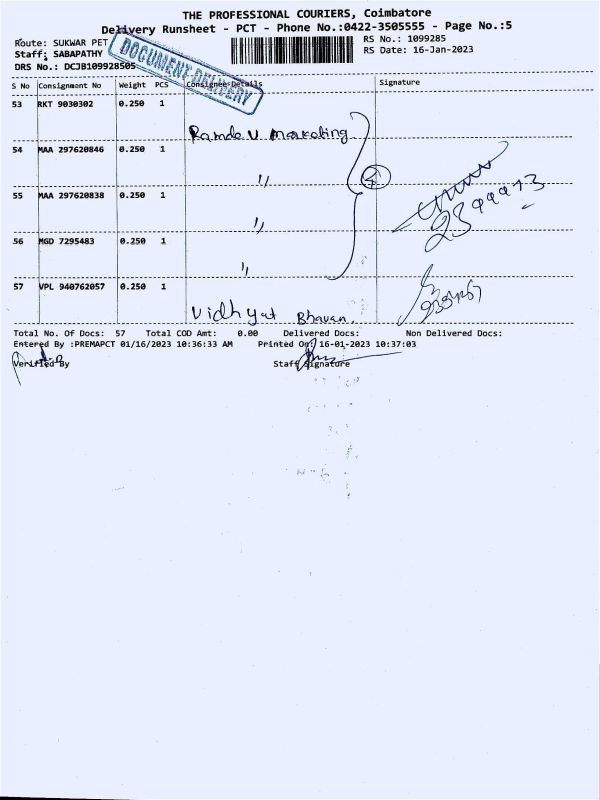 THE PROFESSIONAL COURIERS, Coimbatore
Delivery Runsheet - PCT - Phone No.:0422-3505555 - Page No.:5
Route: SUKWAR PET
RS No.: 1099285
Staff: SABAPATHY
RS Date: 16-Jan-2023
DRS No.: DCJB109928505
DOCUMENT DELIVERY
S No Consignment No Weight PCS Consignee Details Signature
53 RKT 9030302 0.250 1
Ramdev Marketing
54 MAA 297620846 0.250 1
"
4
55 MAA 297620838 0.250 1
"
56 MGD 7295483 0.250 1
"
57 VPL 940762057 0.250 1
Vidhyat Bhavan.
Total No. Of Docs: 57 Total COD Amt: 0.00 Delivered Docs: Non Delivered Docs:
Entered By :PREMAPCT 01/16/2023 10:36:33 AM Printed On: 16-01-2023 10:37:03
Verified By Staff Signature